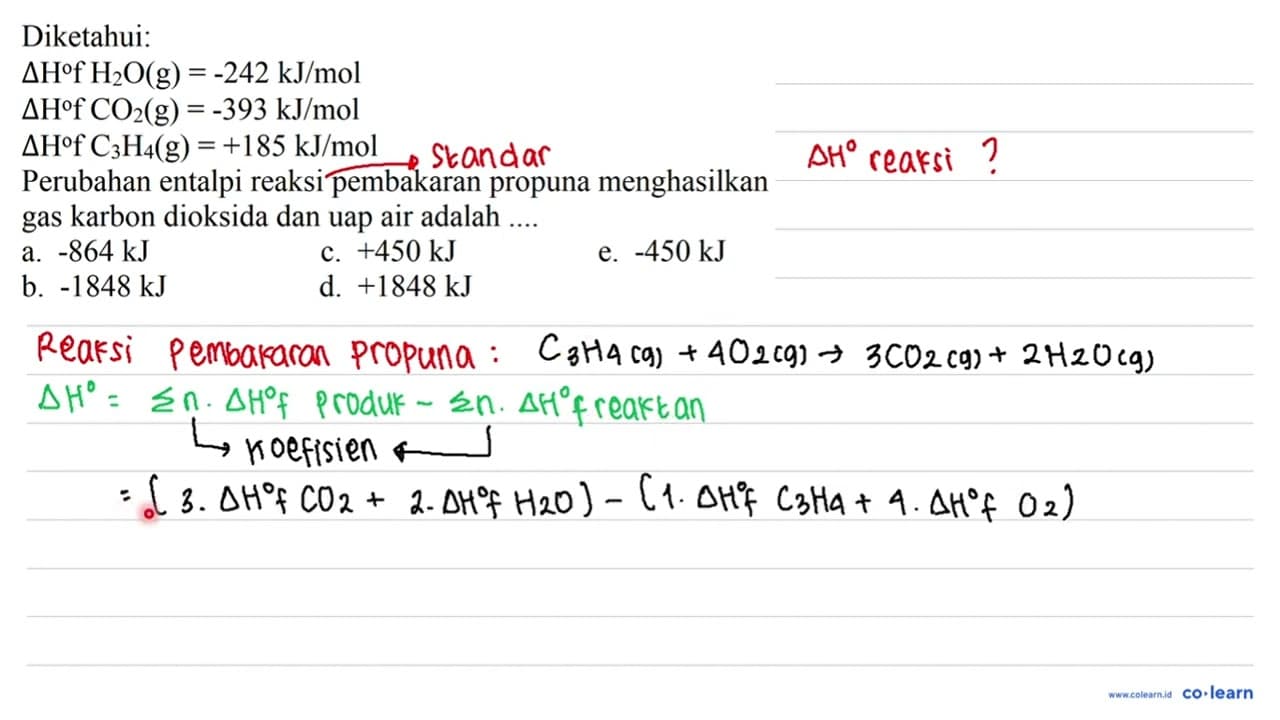 Diketahui:
ΔH°f H₂O(g) = -242 kJ/mol
ΔH°f CO₂(g) = -393 kJ/mol
ΔH°f C₃H₄(g) = +185 kJ/mol
Standar
ΔH° reaksi ?
Perubahan entalpi reaksi pembakaran propuna menghasilkan
gas karbon dioksida dan uap air adalah ....
a. -864 kJ c. +450 kJ e. -450 kJ
b. -1848 kJ d. +1848 kJ
Reaksi Pembakaran propuna : C3H4 (g) + 4O2 (g) → 3CO2 (g) + 2H2O (g)
ΔH° = Σn. ΔH°f Produk - Σn. ΔH°f reaktan
↳ Koefisien ←
= ( 3. ΔH°f CO2 + 2. ΔH°f H2O ) - ( 1. ΔH°f C3H4 + 4. ΔH°f O2 )
www.colearn.id co·learn